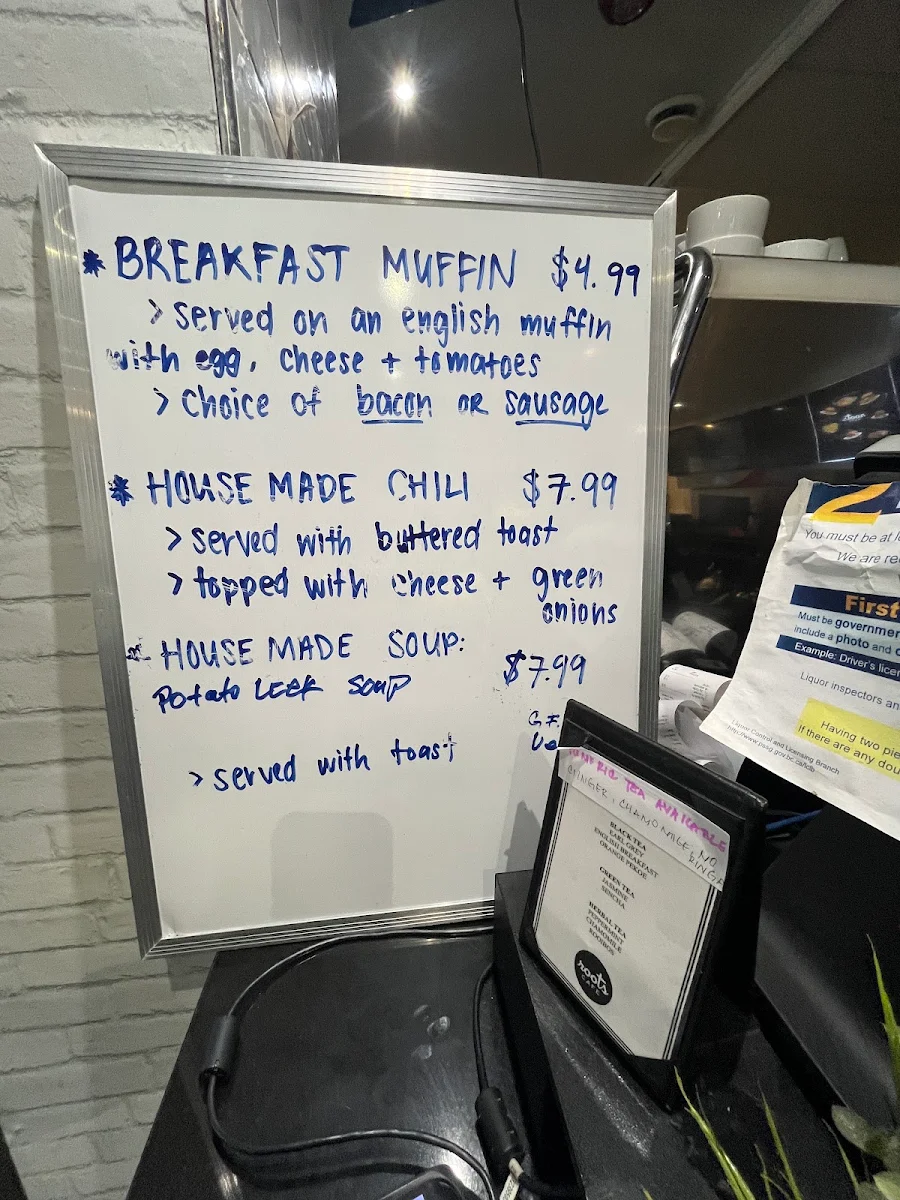 * BREAKFAST MUFFIN $4.99
> served on an english muffin
with egg, cheese + tomatoes
> choice of bacon or sausage
* HOUSE MADE CHILI $7.99
> served with buttered toast
> topped with cheese + green
onions
* HOUSE MADE SOUP:
Potato LEEK SOUP $7.99
G.F.
> served with toast
TEA AVAILABLE
GINGER, CHAMOMILE, NO
BLACK TEA
EARL GREY
ENGLISH BREAKFAST
ORANGE PEKOE
GREEN TEA
JASMINE
SENCHA
HERBAL TEA
PEPPERMINT
CHAMOMILE
ROOIBOS
roots
CAFE
2
You must be at
We are
First
Must be
include a photo and
Example: Driver's
Liquor inspectors
Having two
If there are any
Liquor Control and Licensing Branch